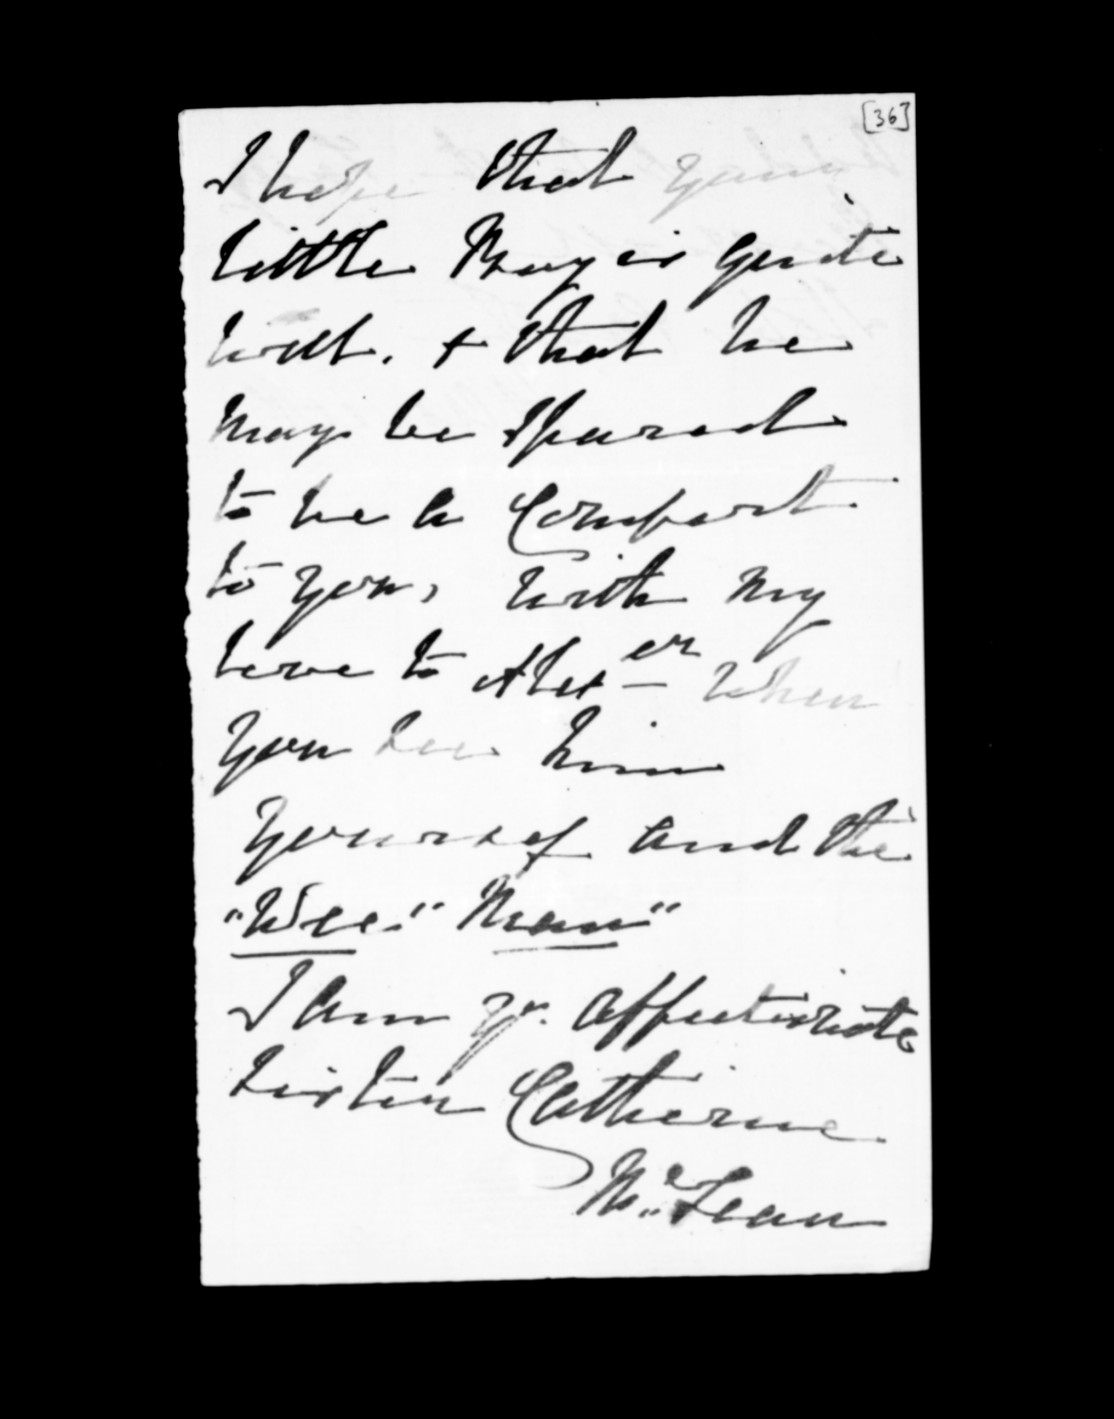 [36]
I hope that your
little Boy is quite
well. + that he
may be spared
to be a Comfort
to you, with my
love to Alex er when
you see him
yourself and the
"Wee" Man"
I am yr. affectionate
sister Catherine
McLean